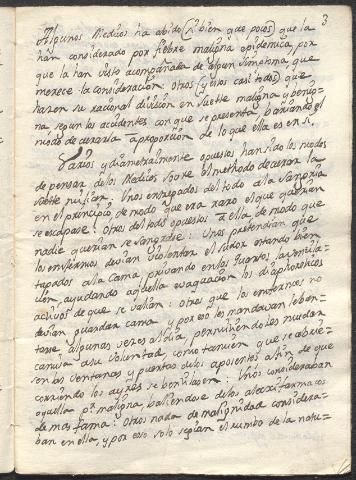 3
Algunos Medicos ha abido (si bien que pocos) que la
han considerado por fiebre maligna epidemica, por
que la han visto acompañada de algun sinthoma, que
merece la consideracion: otros (y son casi todos) que
hazen su racional division en suette maligna, y benig-
na segun los accidentes con que se presenta, bariando el
modo de curarla a proporcion de lo que ella es en si.
Varios, y diametralmente opuestos han sido los modos
de pensar de los Medicos sobre el methodo de curar la
suette miliar. Unos entregados del todo a la sangria
en el principio, de modo que era raro el que querian
se escapase: Otros del todo opuestos a ella, de modo que
nadie querian se sangrase: Unos pretendian que
los enfermos devian violentar el sudor estando bien
tapados a la cama, privando en los quartos la ventila-
cion, ayudando aquella evaquacion los diaphoreticos
activos de que se valian: otros que los enfermos no
devian guardar cama y por eso les mandavan leban-
tarse algunas veces al dia, permitiendoles mudar
camisa a su voluntad, como tamvien que se abrie-
sen las ventanas y puertas de los aposentos a fin de que
corriendo los ayres se bentilasen: Unos consideraban
aquella pr. maligna, baliendose de los alexifarmacos
de mas fama: Otros nada de malignidad considera-
ban en ella, y por eso solo seguian el rumbo de la natu-